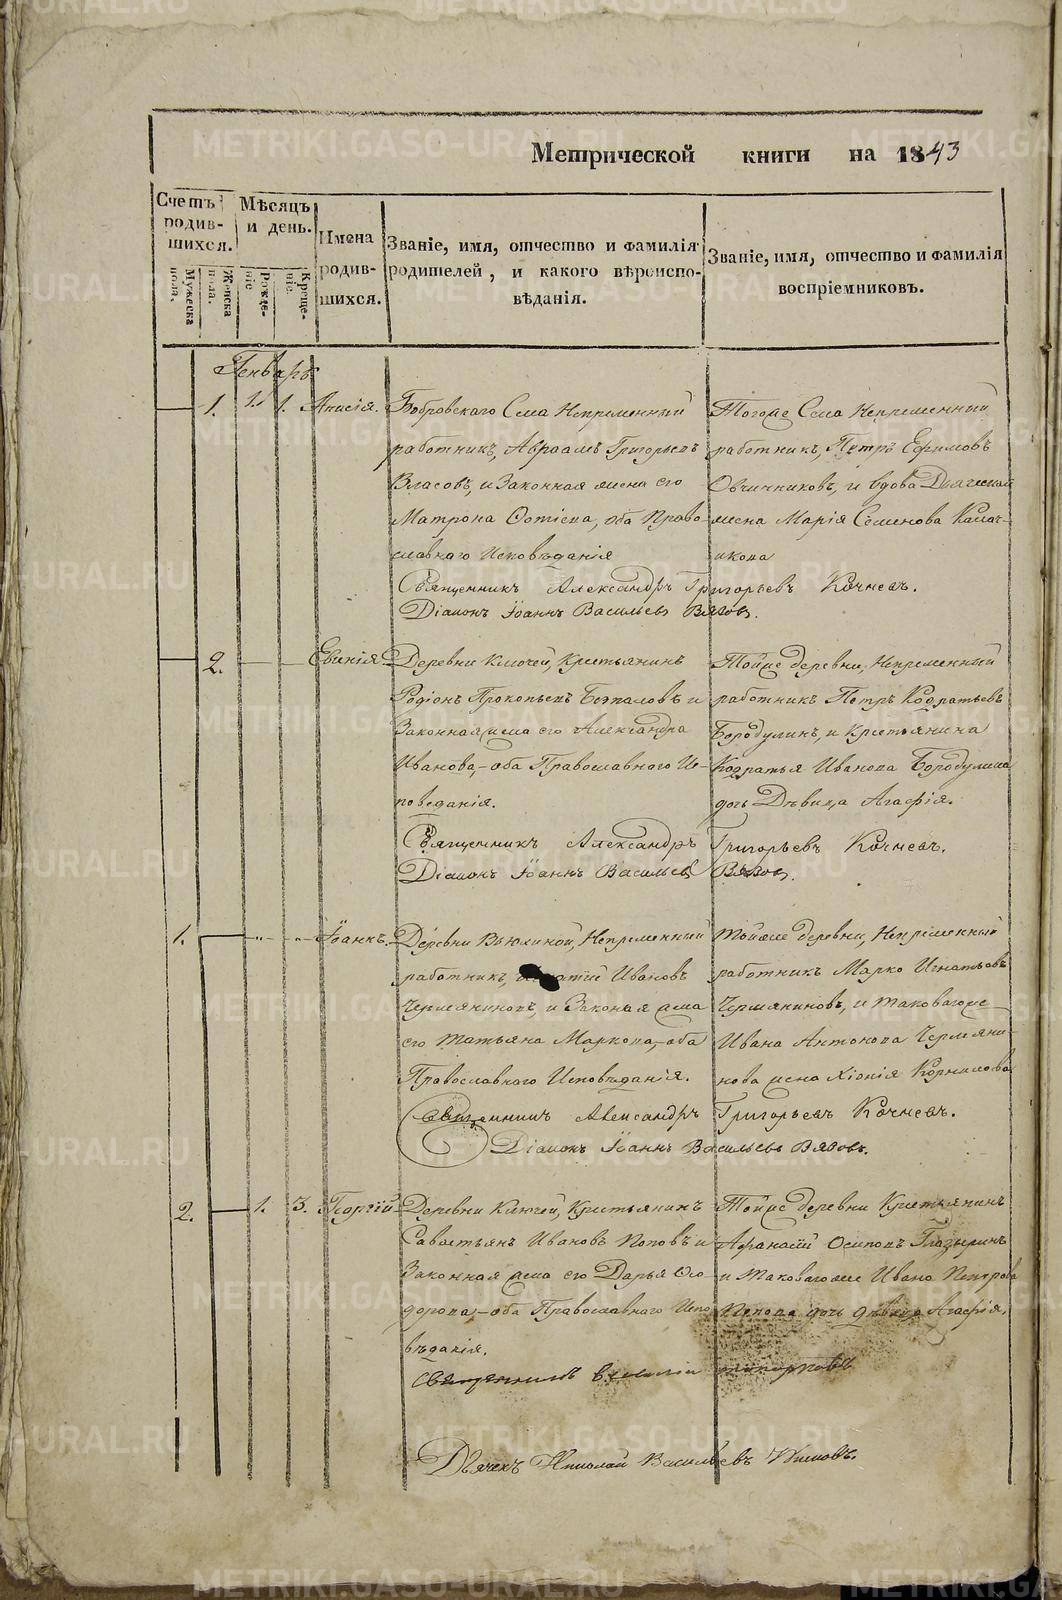 Метрической книги на 1843
Счетъ родив-шихся.
Мужеска пола.
Женска пола.
Мѣсяцъ и день.
Рожде-ніе
Креще-ніе.
Имена родив-шихся.
Званіе, имя, отчество и фамилія
родителей, и какого вѣроиспо-
вѣданія.
Званіе, имя, отчество и фамилія
воспріемниковъ.
Генварь
1. 1. 1. Анисія.
Бобровскаго Села Непременный
работникъ, Авраамъ Григорьевъ
Власовъ, и Законная жена его
Матрона Фотіева, оба Право-
славнаго Исповѣданія
Тогоже Села Непременный
работникъ, Петръ Ефимовъ
Овчинниковъ, и вдова
жена Марія Семенова
Священникъ Александръ Григорьевъ Кочневъ.
Діаконъ Іоаннъ Васильевъ Вязовъ.
2. Евгенія.
Деревни Ключей, Крестьянинъ
Родіонъ Прокопьевъ и
Законная жена его Александра
Иванова, оба Православнаго Ис-
поведанія.
Тойже деревни, Непременный
работникъ Петръ Кодратьевъ
Бородулинъ, и Крестьянина
Кодратья Иванова Бородулина
дочь Дѣвица Агафія.
Священникъ Александръ Григорьевъ Кочневъ.
Діаконъ Іоаннъ Васильевъ Вязовъ.
1. Іоаннъ.
Деревни Вьюхиной, Непременный
работникъ, Ивановъ
Чермяниновъ, и Законная жена
его Татьяна Маркова, оба
Православнаго Исповѣданія.
Тойже деревни, Непременный
работникъ Марко Игнатьевъ
Чермяниновъ, и таковагоже
Ивана Антонова Чермяни-
нова жена Хіонія Корнилова
Священникъ Александръ Григорьевъ Кочневъ.
Діаконъ Іоаннъ Васильевъ Вязовъ.
2. 1. 3. Георгій
Деревни Ключей, Крестьянинъ
Савастьянъ Ивановъ Поповъ и
Законная жена его Дарья Фе-
дорова, оба Православнаго Испо-
вѣданія.
Тойже деревни Крестьянинъ
Афанасій Осиповъ Глазыринъ
и таковагоже Ивана Петрова
Попова дочь дѣвица Агафія.
Священникъ Василій Топорковъ
Дьячекъ Николай Васильевъ
METRIKI.GASO-URAL.RU